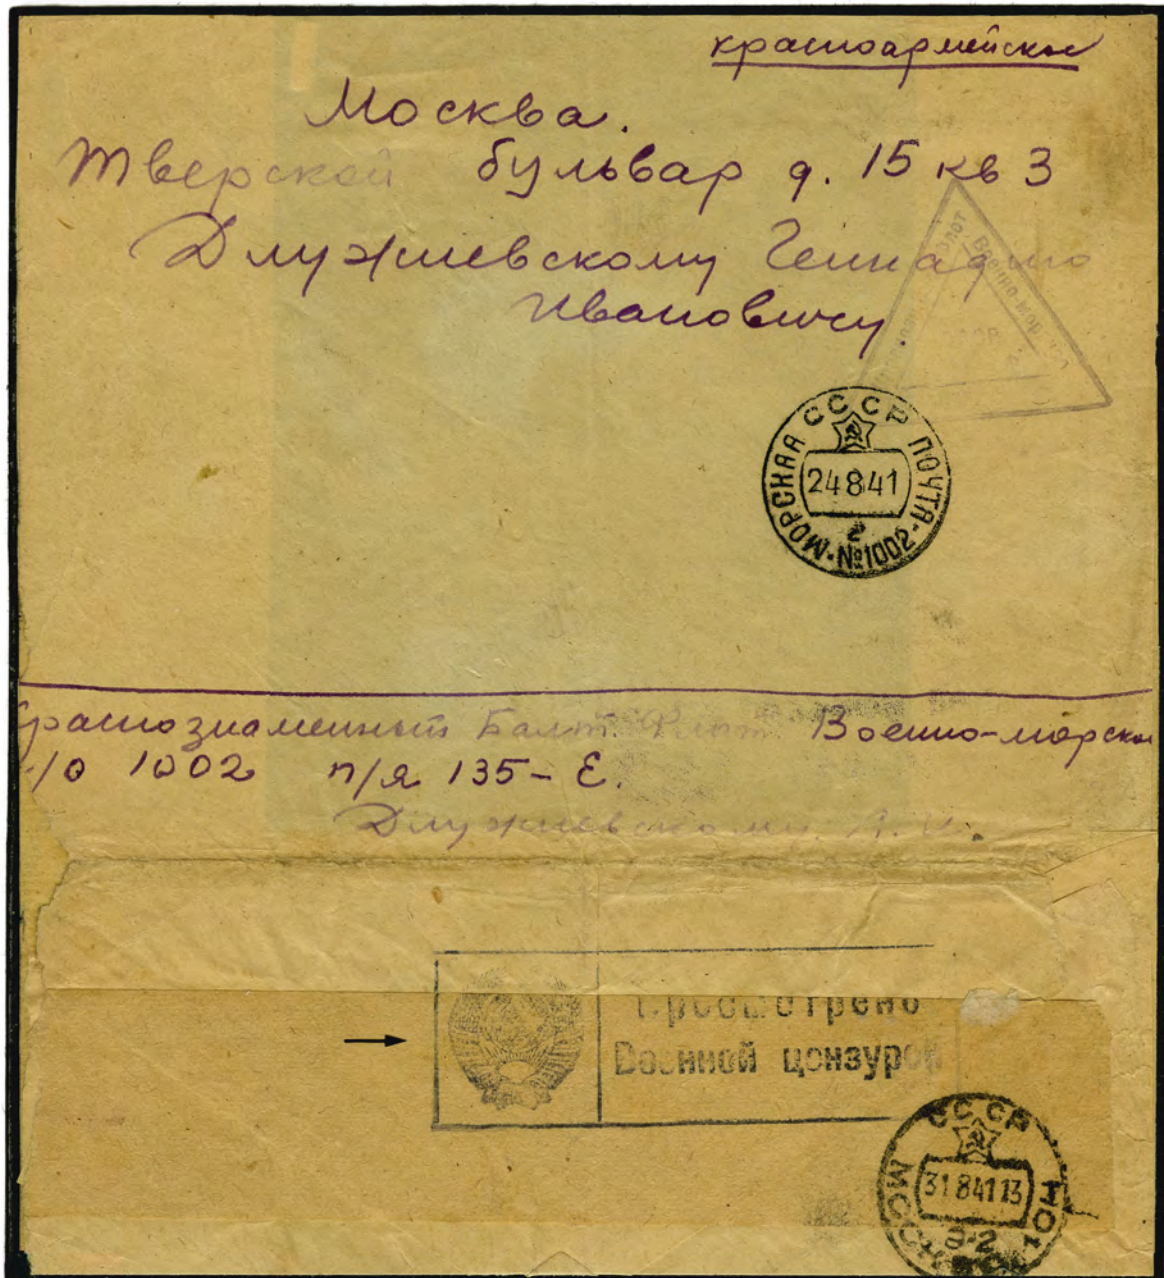 красноармейское
Москва.
Тверской бульвар д. 15 кв 3
Длужневскому Геннадию
Ивановичу.
Флот Военно-мор
СССР
СССР
МОРСКАЯ ПОЧТА
24 8 41
г
№1002
Краснознаменный Балт. Флот. Военно-морска
п/о 1002 п/я 135-Е.
Длужневскому. А. И.
Просмотрено
Военной цензурой
СССР
МОСКВА ПОЧТ
31 8 41 13
Э-2